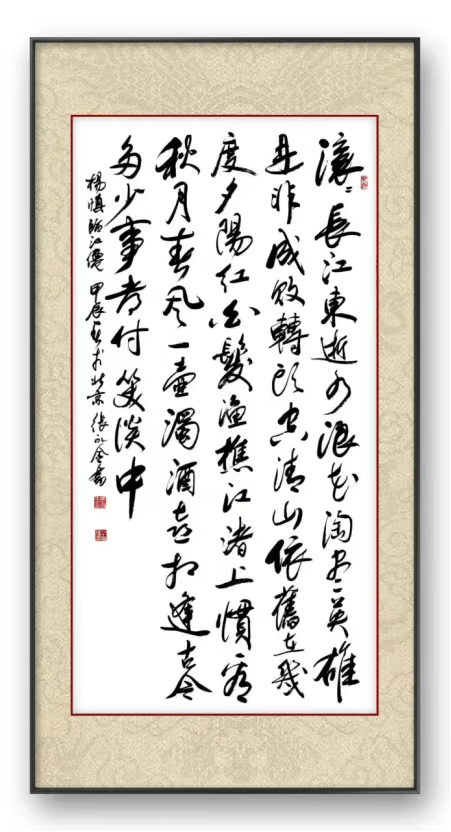 滚々長江東逝水浪花淘尽英雄
是非成敗轉头空清山依舊在幾
度夕陽红白髮漁樵江渚上慣看
秋月春风一壺濁酒喜相逢古今
多少事都付笑談中
楊慎臨江僊 甲辰 於北京 張永金書